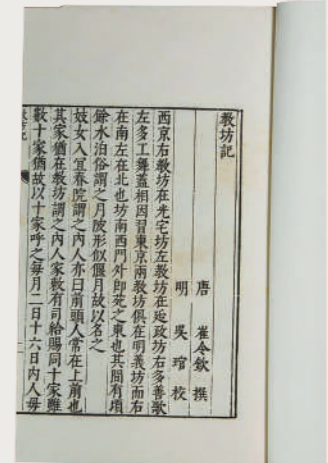 教坊記
唐 崔令欽 撰
明 吳琯 校
西京右教坊在光宅坊左教坊在延政坊右多善歌
左多工舞蓋相因習東京兩教坊俱在明義坊而右
在南左在北也坊南西門外即苑之東也其間有頃
餘水泊俗謂之月陂形似偃月故以名之
妓女入宜春院謂之內人亦曰前頭人常在上前也
其家猶在教坊謂之內人家敕有司給賜同十家雖
數十家猶故以十家呼之每月二日十六日內人母
教坊記